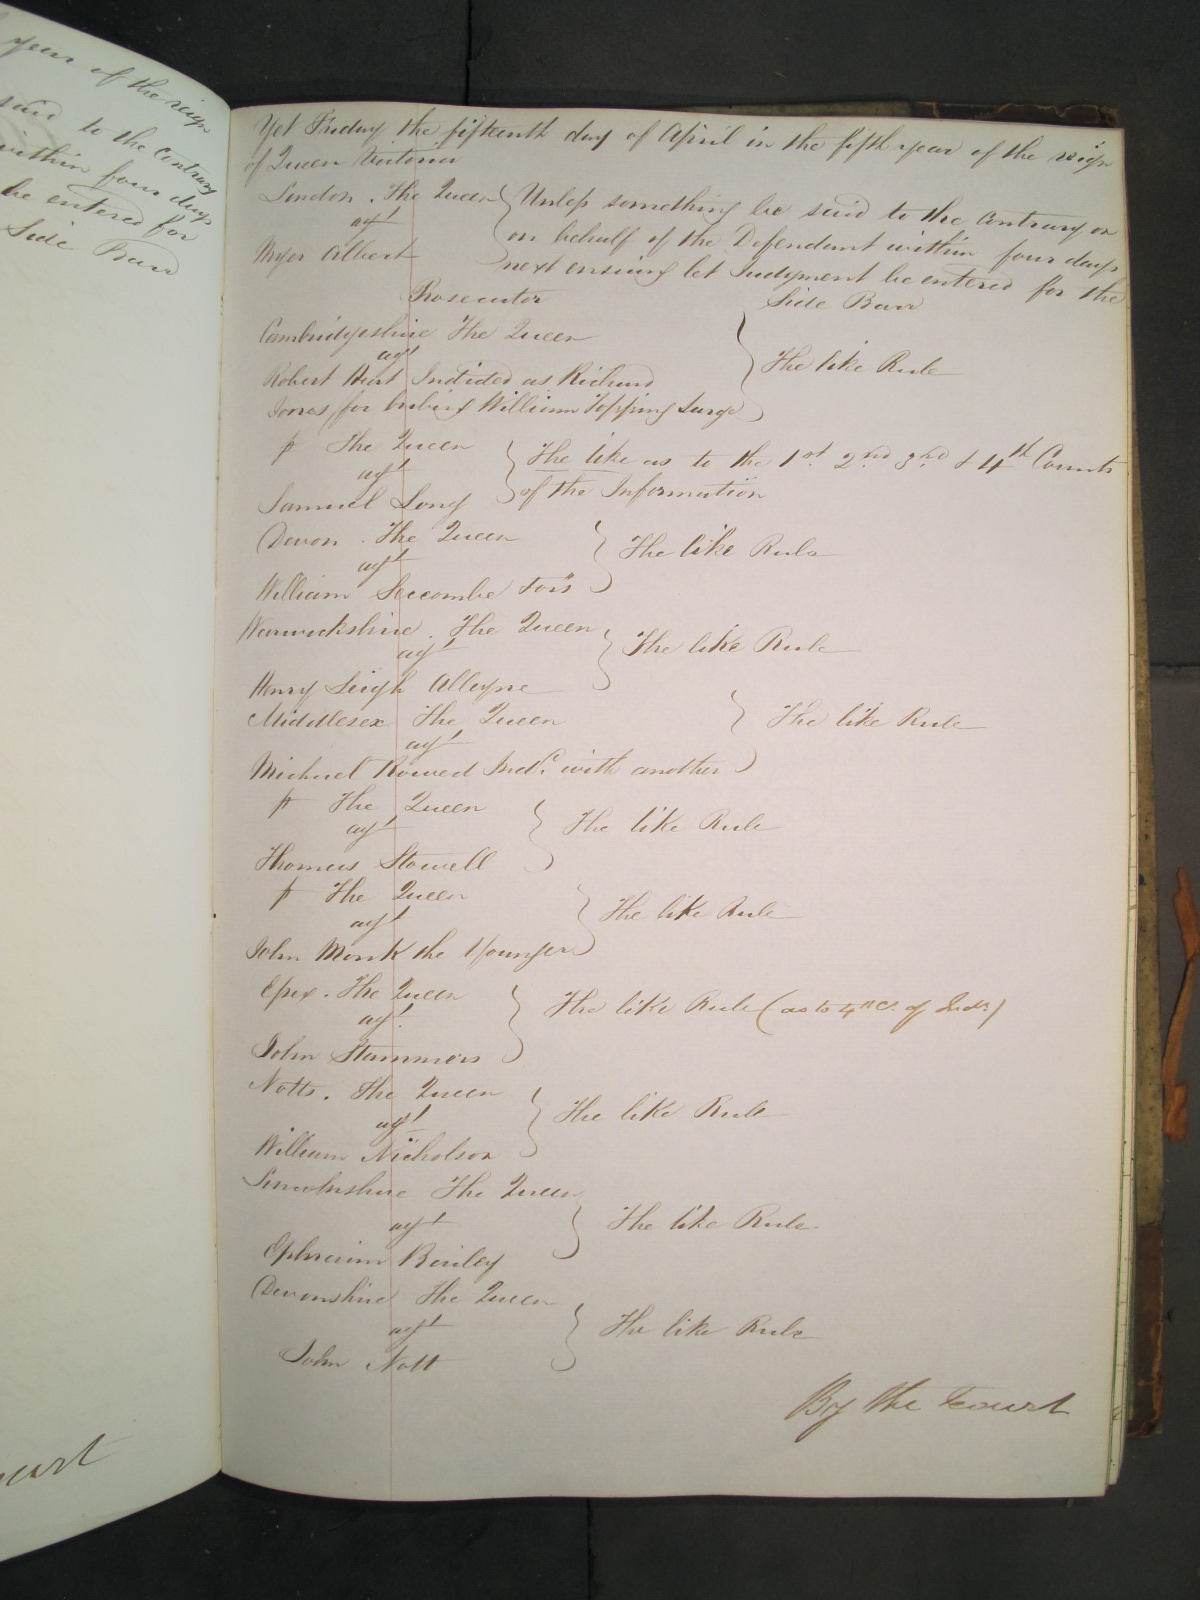 year of the reign
said to the Contrary
within four days
be entered for
Side Barr
Yet Friday the fifteenth day of April in the fifth year of the reign
of Queen Victoria
London . The Queen
agt
Myer Albert
Unless something be said to the Contrary on
on behalf of the Defendant within four days
next ensuing let Judgment be entered for the
Prosecutor
Side Barr
Cambridgeshire The Queen
agt
Robert Hart Indicted as Richard
Jones for bribing William Topping Large
The like Rule
p The Queen
agt
Samuel Long
The like as to the 1st 2nd 3rd & 4th Counts
of the Information
Devon . The Queen
agt
William Seccombe
The like Rule
Warwickshire . The Queen
agt
Henry Leigh Alleyne
The like Rule
Middlesex The Queen
agt
Michael Rowed Indd. with another
The like Rule
p The Queen
agt
Thomas Stowell
The like Rule
p The Queen
agt
John Monk the Younger
The like Rule
Essex . The Queen
agt.
John Stammers
The like Rule (as to 4th Ct. of Indt.)
Notts . The Queen
agt
William Nicholson
The like Rule
Lincolnshire The Queen
agt
Ephraim Booley
The like Rule
Devonshire The Queen
agt
John Nott
The like Rule
By the Court